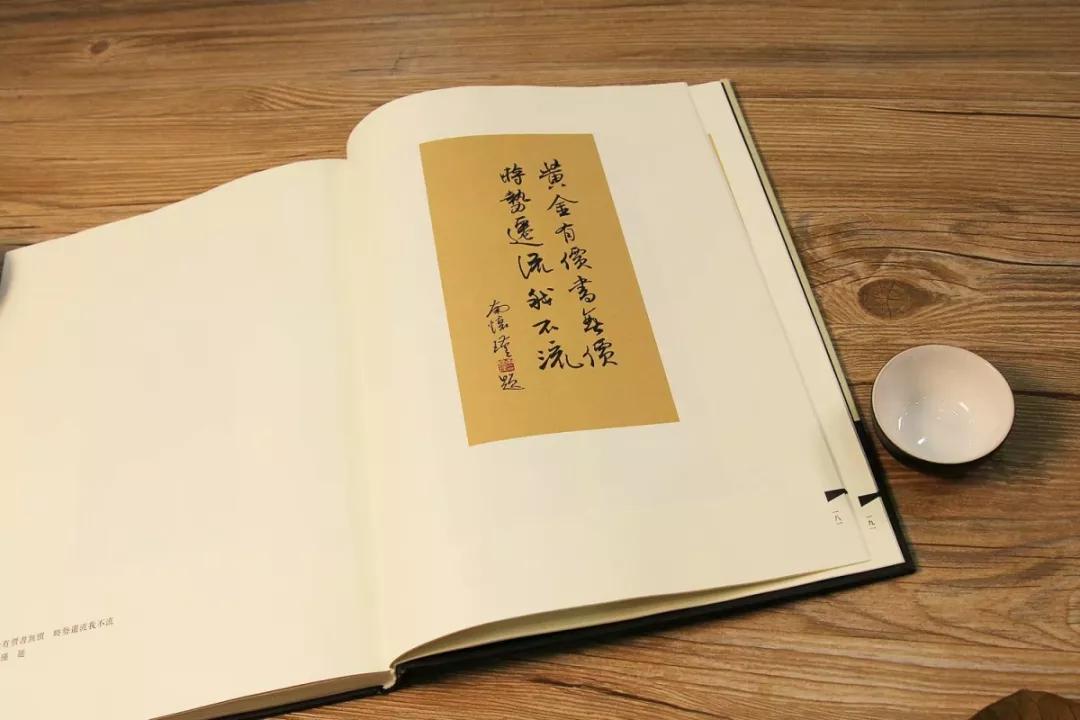 黃金有價書無價
時勢遷流我不流
南懷瑾
題
有價書無價　時勢遷流我不流
瑾　題
一八一
一九一